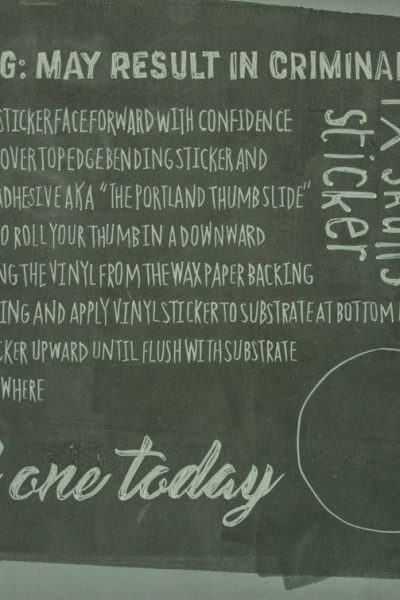 G: MAY RESULT IN CRIMINAL
STICKER FACE FORWARD WITH CONFIDENCE
OVER TOP EDGE BENDING STICKER AND
ADHESIVE AKA "THE PORTLAND THUMB SLIDE"
O ROLL YOUR THUMB IN A DOWNWARD
NG THE VINYL FROM THE WAX PAPER BACKING
ING AND APPLY VINYL STICKER TO SUBSTRATE AT BOTTOM
CKER UPWARD UNTIL FLUSH WITH SUBSTRATE
WHERE
one today
sticker